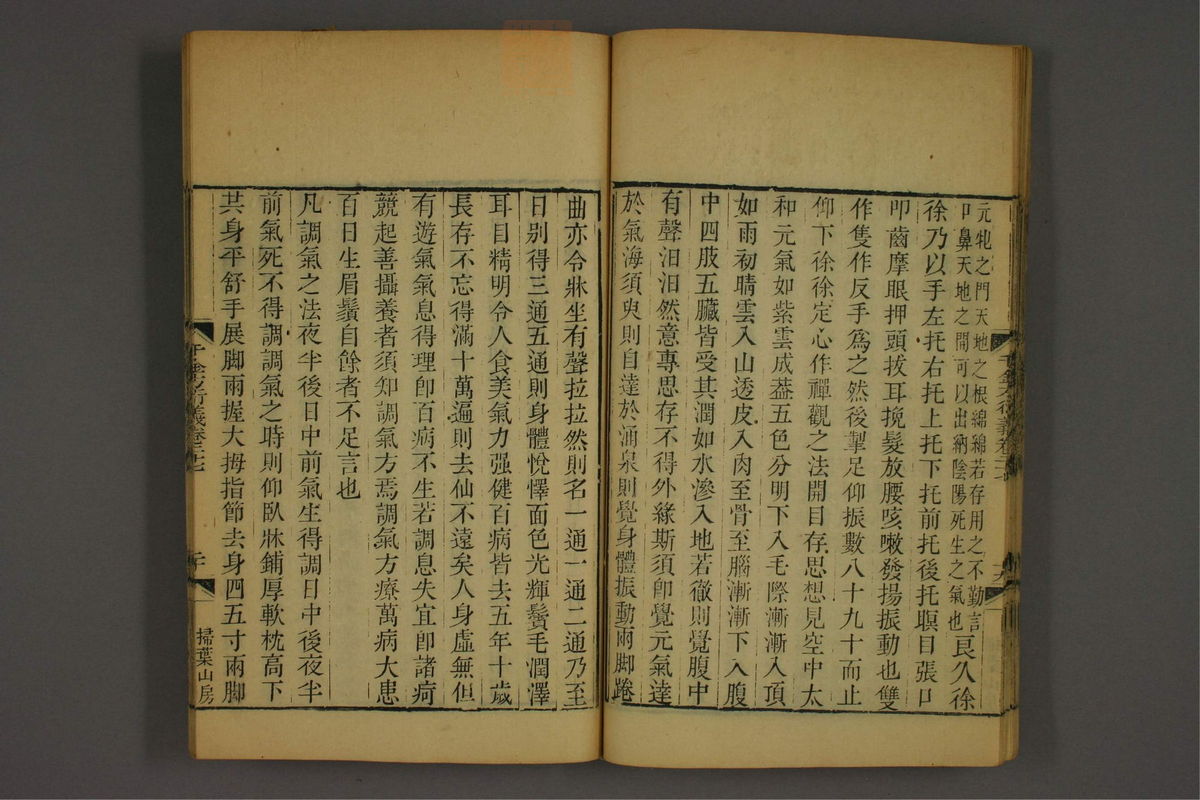 元牝之門天地之根綿綿若存用之不勤言
口鼻天地之間可以出納陰陽死生之氣也良久徐
徐乃以手左托右托上托下托前托後托瞑目張口
叩齒摩眼押頭拔耳挽髮放腰咳嗽發揚振動也雙
作隻作反手爲之然後掣足仰振數八十九十而止
仰下徐徐定心作禪觀之法開目存思想見空中太
和元氣如紫雲成葢五色分明下入毛際漸漸入頂
如雨初晴雲入山透皮入肉至骨至腦漸漸下入腹
中四肢五臟皆受其潤如水滲入地若徹則覺腹中
有聲汨汨然意專思存不得外緣斯須卽覺元氣達
於氣海須臾則自達於涌泉則覺身體振動兩脚踡
曲亦令牀坐有聲拉拉然則名一通一通二通乃至
日別得三通五通則身體悅懌面色光輝鬢毛潤澤
耳目精明令人食美氣力强健百病皆去五年十歲
長存不忘得滿十萬遍則去仙不遠矣人身虛無但
有遊氣氣息得理卽百病不生若調息失宜卽諸疴
競起善攝養者須知調氣方焉調氣方療萬病大患
百日生眉鬚自餘者不足言也
凡調氣之法夜半後日中前氣生得調日中後夜半
前氣死不得調調氣之時則仰臥牀鋪厚軟枕高下
共身平舒手展脚兩握大拇指節去身四五寸兩脚
千金方衍義卷二十七
二十
掃葉山房